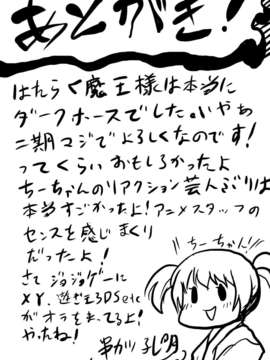 あとがき!
はたらく魔王様は本当に
ダークホースでした。いやぁ
二期マジでよろしくなのです!
ってくらいおもしろかったよ
ちーちゃんのリアクション芸人ぶりは
本当すごかったよ!アニメスタッフの
センスを感じまくり
だったよ!
さて ジョジョゲーに
XY、遊ぶ DS etc
がオラをまってるよ!
やったね!
串がリ 孔明
!!ちーちゃん!!